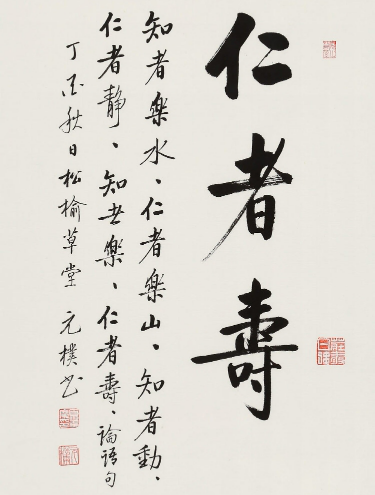 仁者壽
知者樂水、仁者樂山、知者動、
仁者靜、知者樂、仁者壽、論語句
丁酉秋日松榆草堂 元樸書